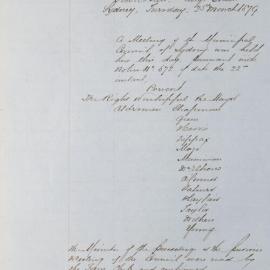 Sydney, Tuesday, 25 March 1879
A Meeting of the Municipal
Council of Sydney was held
here this day pursuant with
Notice No 572 of date the 22nd
instant.
Present
The Right Worshipful the Mayor
Aldermen Chapman
Green
Harris
Kippax
Moore
Merriman
Palmer
Playfair
Taylor
Withers
Young
The Minutes of the Proceedings at the previous
Meeting of the Council were read by
the Town Clerk and